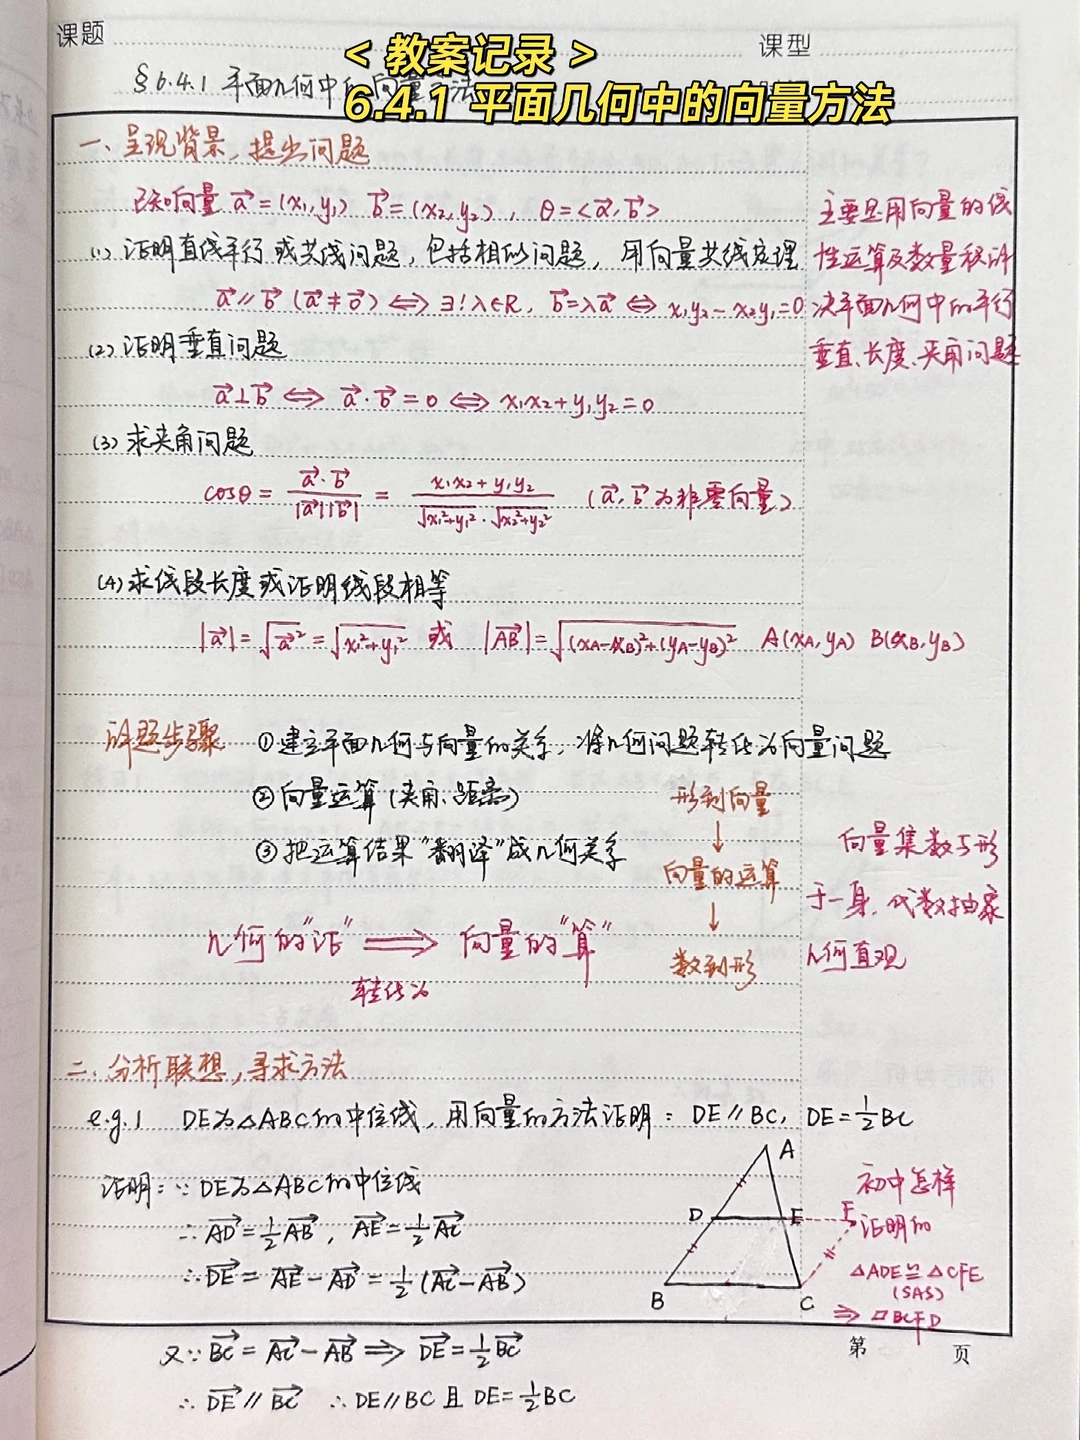 课题
课型
< 教案记录 >
6.4.1 平面几何中的向量方法
§6.4.1 平面几何中的向量方法
一、呈现背景，提出问题
已知向量 a⃗=(x₁,y₁) b⃗=(x₂,y₂)，θ=<a⃗,b⃗>
(1) 证明直线平行或共线问题，包括相似问题，用向量共线定理
a⃗∥b⃗ (a⃗≠0⃗) ⟺ ∃!λ∈R, b⃗=λa⃗ ⟺ x₁y₂-x₂y₁=0
(2) 证明垂直问题
a⃗⊥b⃗ ⟺ a⃗·b⃗=0 ⟺ x₁x₂+y₁y₂=0
(3) 求夹角问题
cosθ = a⃗·b⃗/|a⃗||b⃗| = (x₁x₂+y₁y₂)/(√(x₁²+y₁²)·√(x₂²+y₂²)) (a⃗,b⃗为非零向量)
(4) 求线段长度或证明线段相等
|a⃗|=√(a⃗²)=√(x₁²+y₁²) 或 |AB⃗|=√((xA-xB)²+(yA-yB)²) A(xA,yA) B(xB,yB)
主要是用向量的线
性运算及数量积解
决平面几何中的平行
垂直、长度、夹角问题
解题步骤 ①建立平面几何与向量的关系，将几何问题转化为向量问题
②向量运算(夹角、距离)
③把运算结果"翻译"成几何关系
形到向量
↓
向量的运算
↓
数到形
几何的"证" ⟹ 向量的"算"
转化为
向量集数与形
于一身，代数抽象
几何直观
二、分析联想，寻求方法
e.g.1 DE为△ABC的中位线，用向量的方法证明：DE∥BC，DE=½BC
证明：∵DE为△ABC的中位线
∴AD⃗=½AB⃗，AE⃗=½AC⃗
∴DE⃗=AE⃗-AD⃗=½(AC⃗-AB⃗)
又∵BC⃗=AC⃗-AB⃗ ⟹ DE⃗=½BC⃗
∴DE⃗∥BC⃗ ∴DE∥BC且DE=½BC
A
D
E
F
B
C
初中怎样
证明的
△ADE≌△CFE
(SAS)
⟹ ▱BCFD
第 页